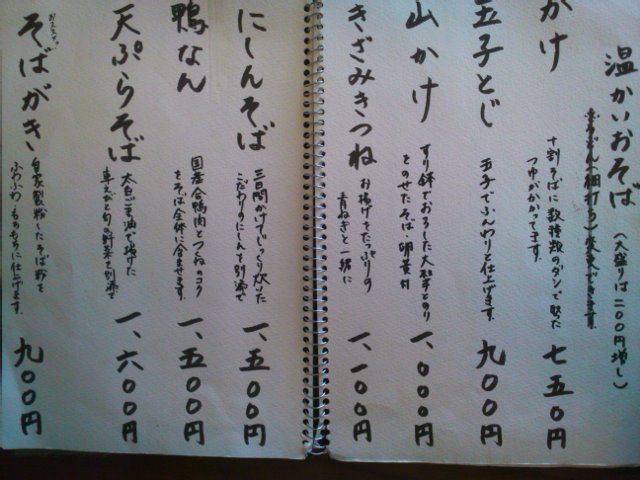 温かいおそば (大盛りは二〇〇円増し)
かけ
十割そばに数種類のダシで取った
つゆがかかってます。
七五〇円
玉子とじ
玉子でふんわりと仕上げます。
九〇〇円
山かけ
すり鉢でおろした大和芋とのり
をのせたそば 卵黄付
一、〇〇〇円
きざみきつね
お揚げをたっぷりの
青ねぎと一緒に
一、一〇〇円
にしんそば
三日間かけてじっくり炊いた
こだわりのにしんを別添で
一、五〇〇円
鴨なん
国産合鴨肉とつくねのコク
をそば全体に合わせます。
一、五〇〇円
天ぷらそば
太白ごま油で揚げた
車えびと旬の野菜を別添で
一、六〇〇円
そばがき
自家製粉したそば粉を
ふわふわ もちもちに仕上げます。
九〇〇円